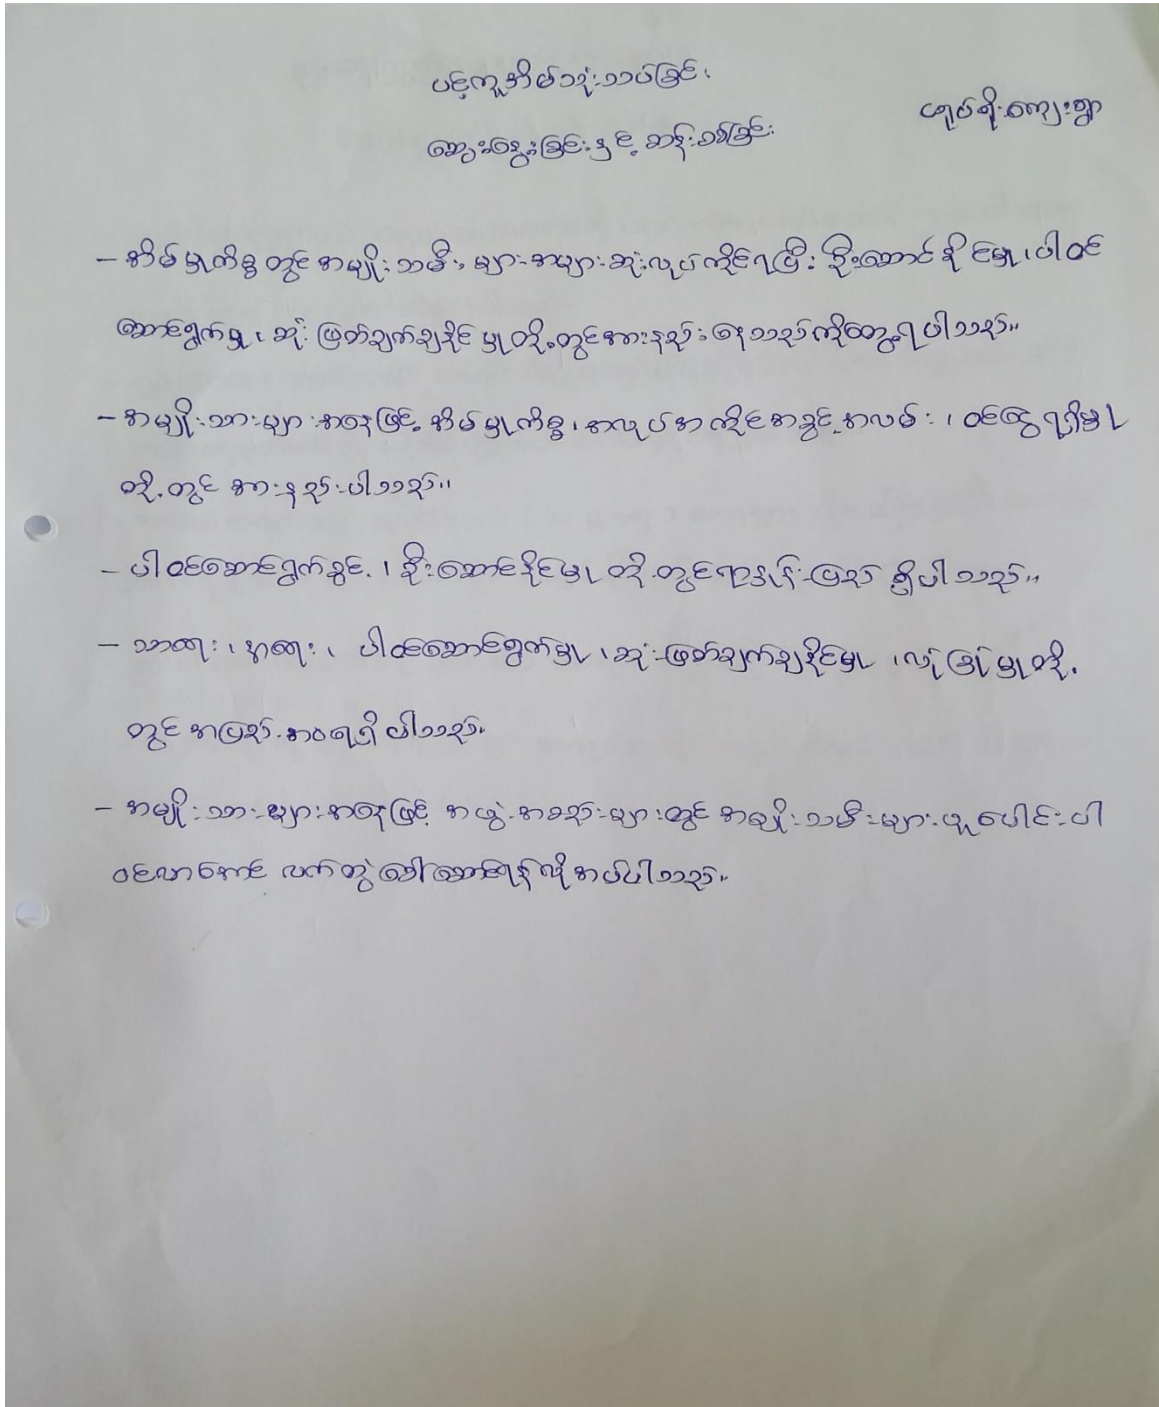 ပင့်ကူအိမ်သုံးသပ်ခြင်း
ကျေးရွာ
ဆွေးနွေးခြင်းနှင့် ဆန်းစစ်ခြင်း
– အိမ်မှုကိစ္စတွင် အမျိုးသမီးများ အများဆုံးလုပ်ကိုင်ရပြီး ဦးဆောင်နိုင်မှု၊ ပါဝင်
ဆောင်ရွက်မှု၊ ဆုံးဖြတ်ချက်ချနိုင်မှုတို့တွင်အားနည်းနေသည်ကိုတွေ့ရပါသည်။
– အမျိုးသားများအနေဖြင့် အိမ်မှုကိစ္စ၊ အလုပ်အကိုင်အခွင့်အလမ်း၊ ဝင်ငွေရရှိမှု
တို့တွင် အားနည်းပါသည်။
– ပါဝင်ဆောင်ရွက်ခွင့်၊ ဦးဆောင်နိုင်မှု တို့တွင်ရာနှုန်းပြည့် ရှိပါသည်။
– သာရေး၊ နာရေး၊ ပါဝင်ဆောင်ရွက်မှု၊ ဆုံးဖြတ်ချက်ချနိုင်မှု၊ လုံခြုံမှုတို့
တွင် အပြည့်အဝရရှိပါသည်။
– အမျိုးသားများအနေဖြင့် အဖွဲ့အစည်းများတွင် အမျိုးသမီးများပူးပေါင်းပါ
ဝင်လာအောင် လက်တွဲခေါ်ဆောင်ရန်လိုအပ်ပါသည်။